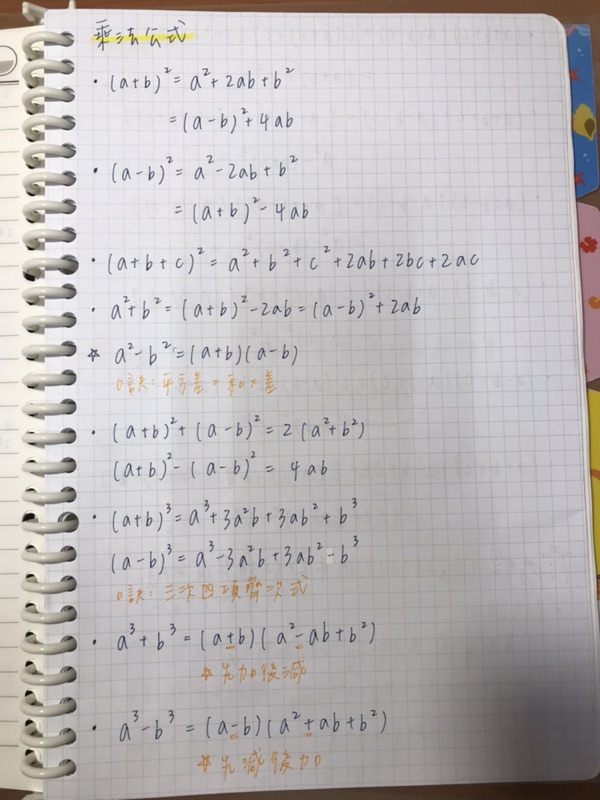 乘法公式
• (a+b)² = a²+2ab+b²
= (a-b)²+4ab
• (a-b)² = a²-2ab+b²
= (a+b)²-4ab
• (a+b+c)² = a²+b²+c²+2ab+2bc+2ac
• a²+b² = (a+b)²-2ab = (a-b)²+2ab
☆ a²-b² = (a+b)(a-b)
口訣:平方差=和×差
• (a+b)²+(a-b)² = 2(a²+b²)
(a+b)²-(a-b)² = 4ab
• (a+b)³ = a³+3a²b+3ab²+b³
(a-b)³ = a³-3a²b+3ab²-b³
口訣:三次四項齊次式
• a³+b³ = (a+b)(a²-ab+b²)
☆先加後減
• a³-b³ = (a-b)(a²+ab+b²)
☆先減後加